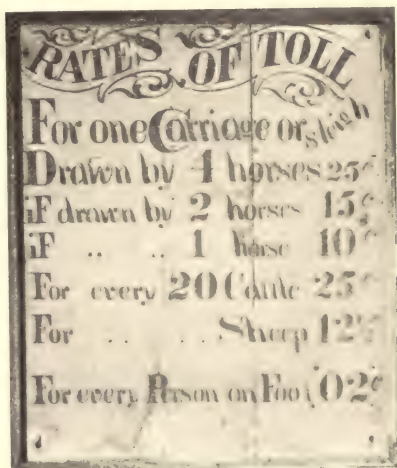 RATES OF TOLL
For one Carriage or sleigh
Drawn by 4 horses 25¢
iF drawn by 2 horses 15¢
iF .. .. 1 horse 10¢
For every 20 Cattle 25¢
For .. .. Sheep 12½
For every Person on Foot 02¢